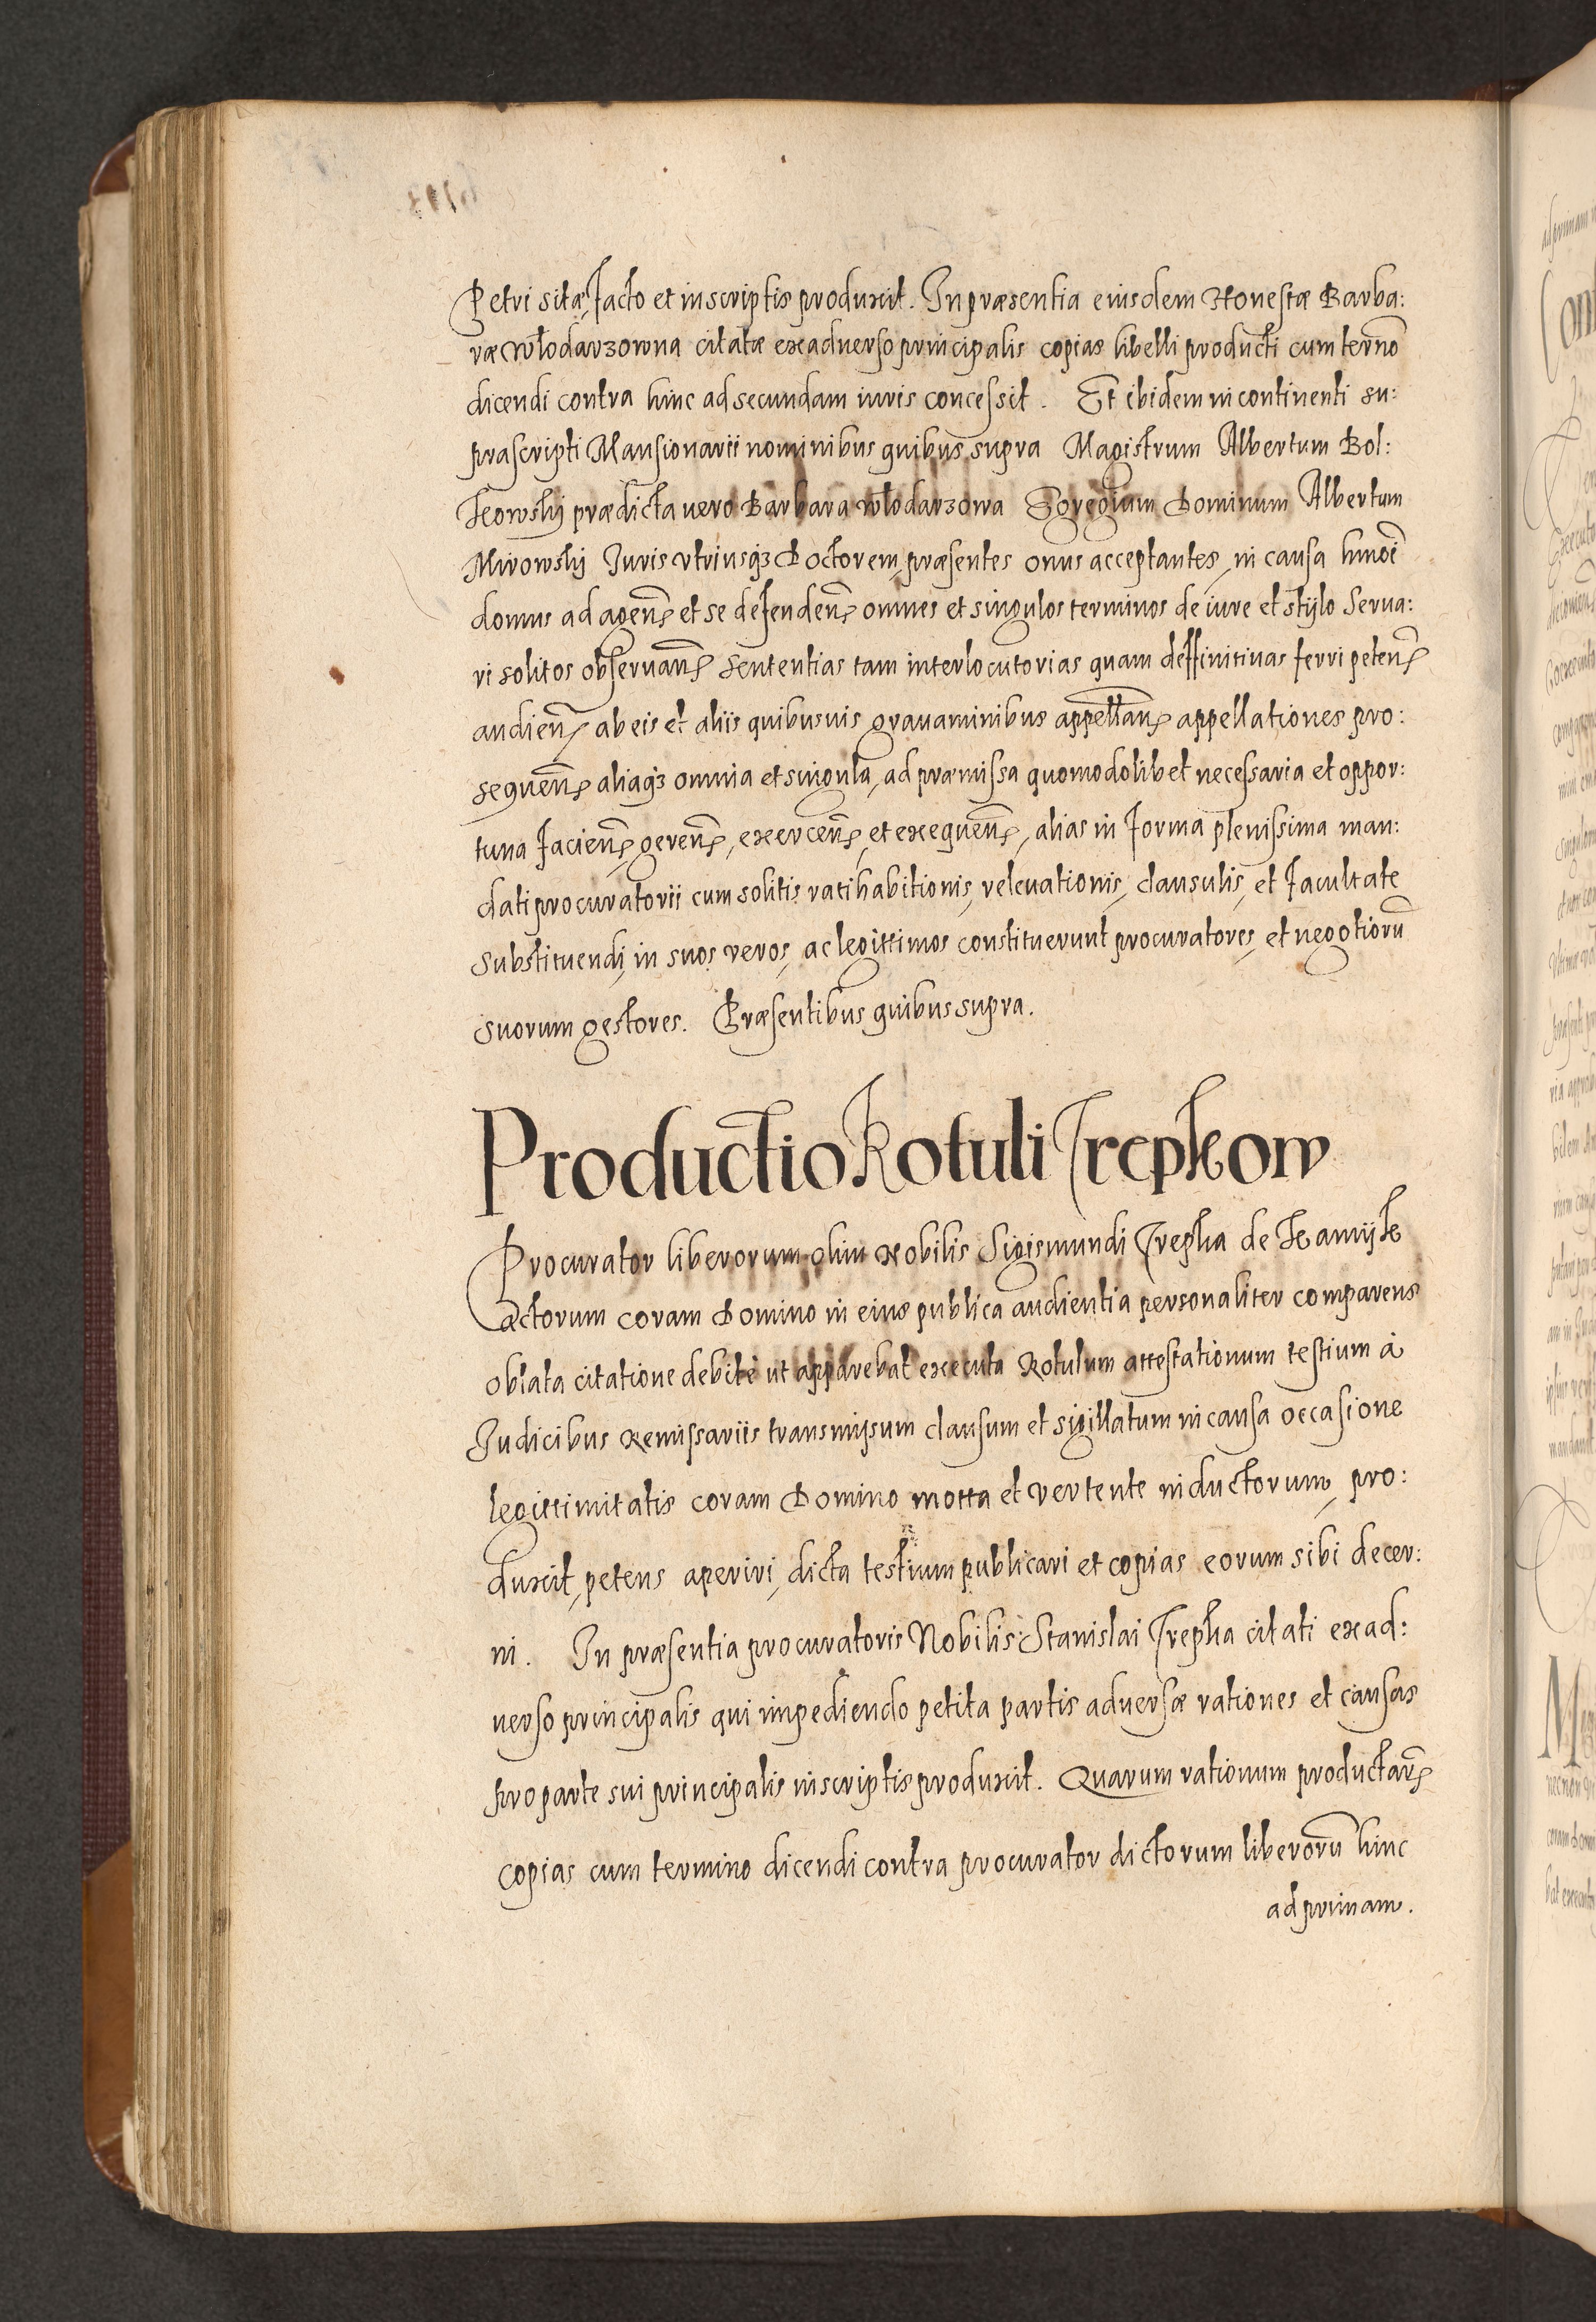 Petri sitæ, facto et in scriptis produxit. In præsentia eiusdem Honestæ Barba:
ræ Włodarzowna citatæ ex adverso principalis copias libelli producti cum termō
dicendi contra hinc ad secundam iuris concessit. Et ibidem in continenti su:
prascripti Mansionarii nominibus quibus supra Magistrum Albertum Bol:
kowskij prædicta uero Barbara Włodarzowa Egregium Dominum Albertum
Mirowskij Juris Vtriusqȝ Doctorem, præsentes onus acceptantes, in causa hmōi
domus ad agenꝭ et se defendenꝭ omnes et singulos terminos de iure et stÿlo Serua:
ri solitos obseruanꝭ Sententias tam interlocutorias quam deffinitiuas ferri petenꝭ
audienꝭ ab eis et aliis quibusuis grauaminibus appellanꝭ appellationes pro:
sequenꝭ aliaqȝ omnia et singula, ad præmissa quomodolibet necessaria et oppor:
tuna facienꝭ, gerenꝭ, exercenꝭ, et exequenꝭ, alias in forma plenissima man:
dati procuratorii cum solitis ratihabitionis, releuationis, clausulis, et facultate
Substituendi, in suos veros, ac legittimos constituerunt procuratores, et negotiorū
suorum gestores. Præsentibus quibus supra.
Productio Rotuli Trepkow
Procurator liberorum olim Nobilis Sigismundi Trepka de Kamÿk
actorum coram Domino in eius publica audientia personaliter comparens
oblata citatione debitè ut apparebat executa Rotulum attestationum testium à
Judicibus Remissariis transmissum clausum et sigillatum in causa occasione
legittimitatis coram Domino motta et vertente inductorum, pro:
duxit, petens aperiri, dicta testium publicari et copias eorum sibi decer:
ni. In præsentia procuratoris Nobilis Stanislai Trepka citati ex ad:
uerso principalis qui impediendo petita partis aduersæ rationes et causas
pro parte sui principalis in scriptis produxit. Quarum rationum productarꝭ
copias cum termino dicendi contra procurator dictorum liberorū hinc
ad primam.